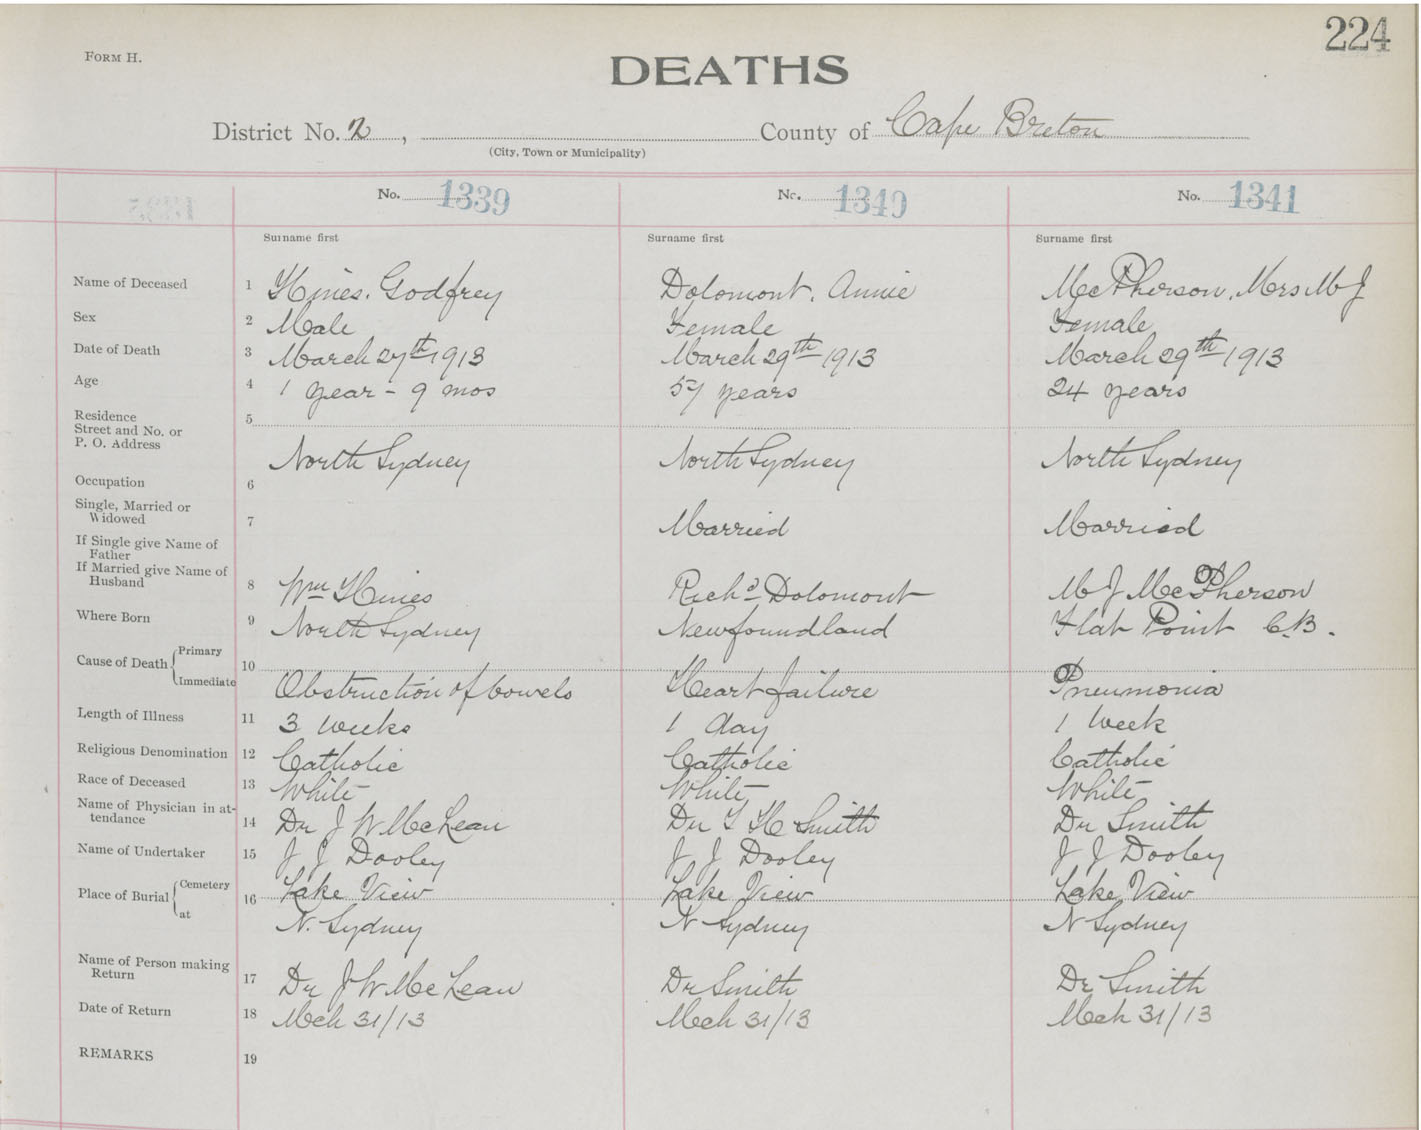 224
FORM H.
DEATHS
District No. 2, County of Cape Breton
(City, Town or Municipality)
No. 1339 No. 1340 No. 1341
Surname first Surname first Surname first
Name of Deceased 1 Hines. Godfrey Dolomont. Annie McPherson, Mrs M J
Sex 2 Male Female Female
Date of Death 3 March 27th 1913 March 29th 1913 March 29th 1913
Age 4 1 year - 9 mos 57 years 24 years
Residence
Street and No. or 5
P. O. Address
North Sydney North Sydney North Sydney
Occupation 6
Single, Married or
Widowed 7 Married Married
If Single give Name of
Father
If Married give Name of
Husband 8 Wm Hines Richd Dolomont M J McPherson
Where Born 9 North Sydney Newfoundland Flat Point C.B.
Cause of Death Primary 10
Immediate Obstruction of bowels Heart failure Pneumonia
Length of Illness 11 3 weeks 1 day 1 week
Religious Denomination 12 Catholic Catholic Catholic
Race of Deceased 13 White White White
Name of Physician in at-
tendance 14 Dr J W McLean Dr Smith Dr Smith
Name of Undertaker 15 J J Dooley J J Dooley J J Dooley
Place of Burial Cemetery 16 Lake View Lake View Lake View
at N. Sydney N Sydney N Sydney
Name of Person making
Return 17 Dr J W McLean Dr Smith Dr Smith
Date of Return 18 Mch 31/13 Mch 31/13 Mch 31/13
REMARKS 19